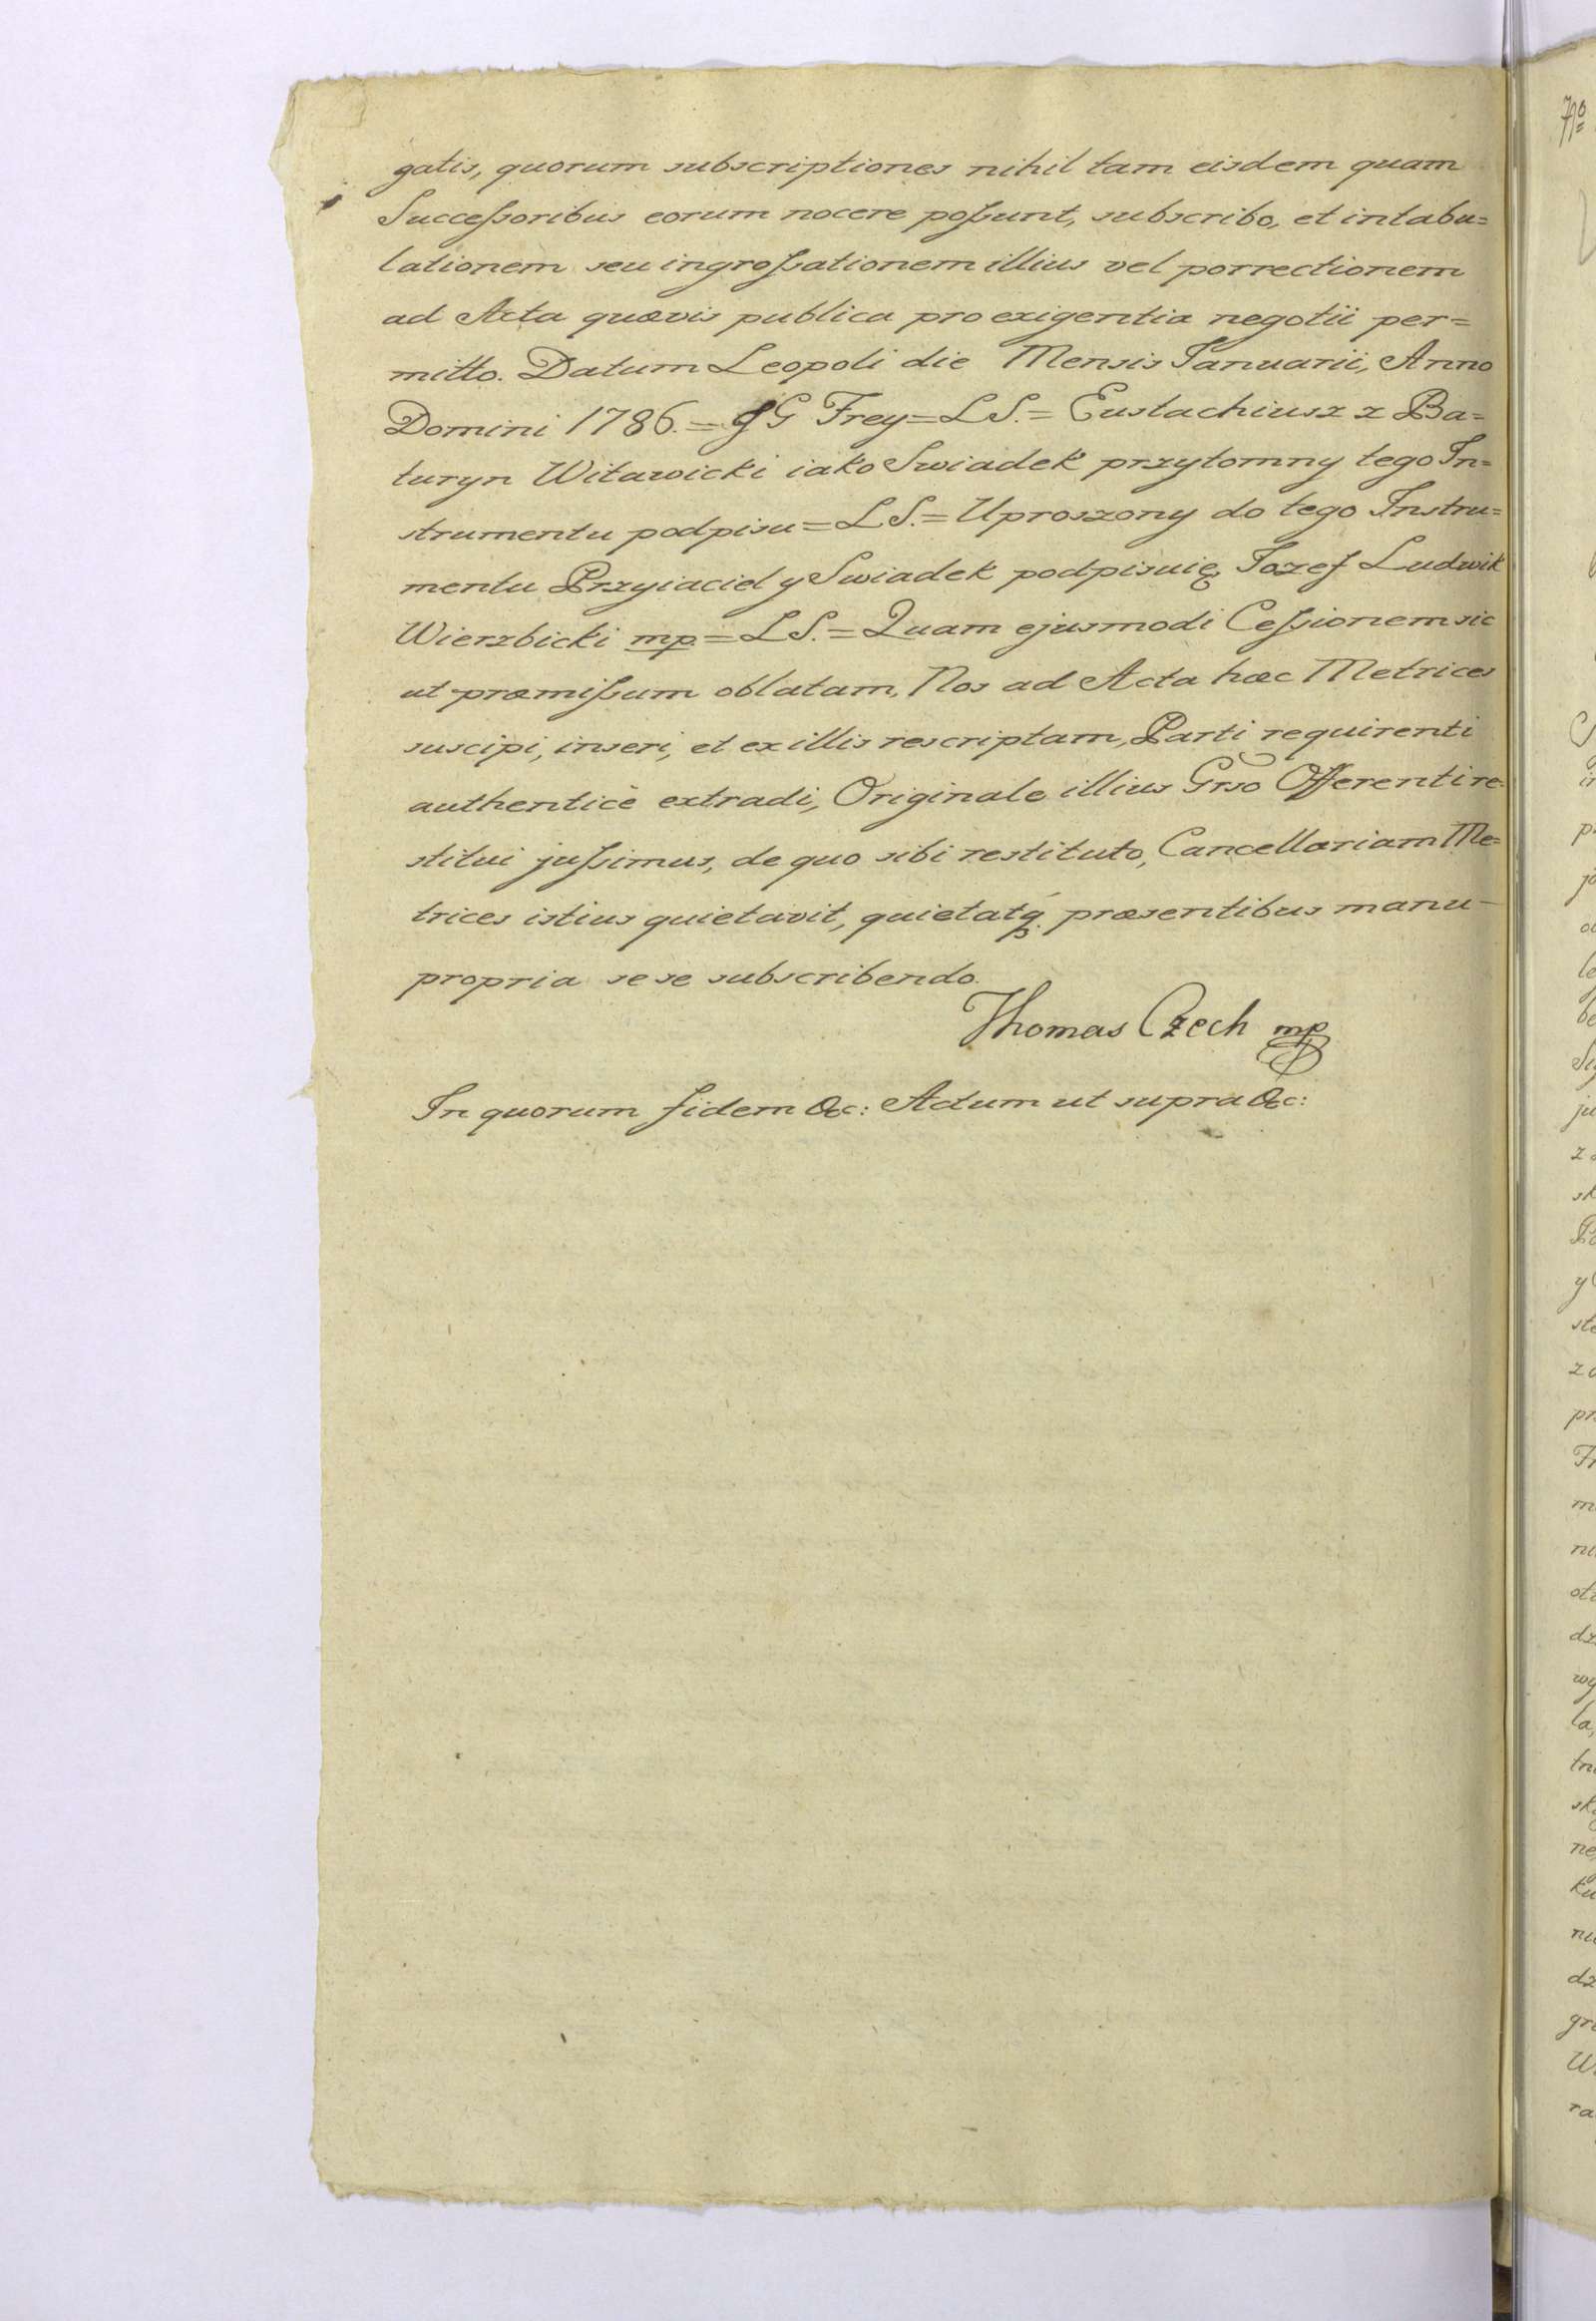 gatis, quorum subscriptiones nihil tam eisdem quam
Succeſsoribus eorum nocere poſsunt, subscribo, et intabu=
lationem seu ingroſsationem illius vel porrectionem
ad Acta quævis publica pro exigentia negotii per=
mitto. Datum Leopoli die Mensis Januarii, Anno
Domini 1786.= J G Frey= L S.= Eustachiusz z Ba=
turyn Witawicki iako Swiadek przytomny tego In=
strumentu podpisu= L S.= Uproszony do tego Instru=
mentu Przyiaciel y Swiadek podpisuię Jozef Ludwik
Wierzbicki mp.= L S.= Quam ejusmodi Ceſsionem sic
ut præmiſsum oblatam, Nos ad Acta hæc Metrices
suscipi, inseri, et ex illis rescriptam, Parti requirenti
authenticè extradi, Originale illius Grso Offerenti re=
stitui juſsimus, de quo sibi restituto, Cancellariam Me=
trices istius quietavit, quietatq. præsentibus manu
propria se se subscribendo.
Thomas Czech mp
In quorum fidem &c: Actum ut supra &c: